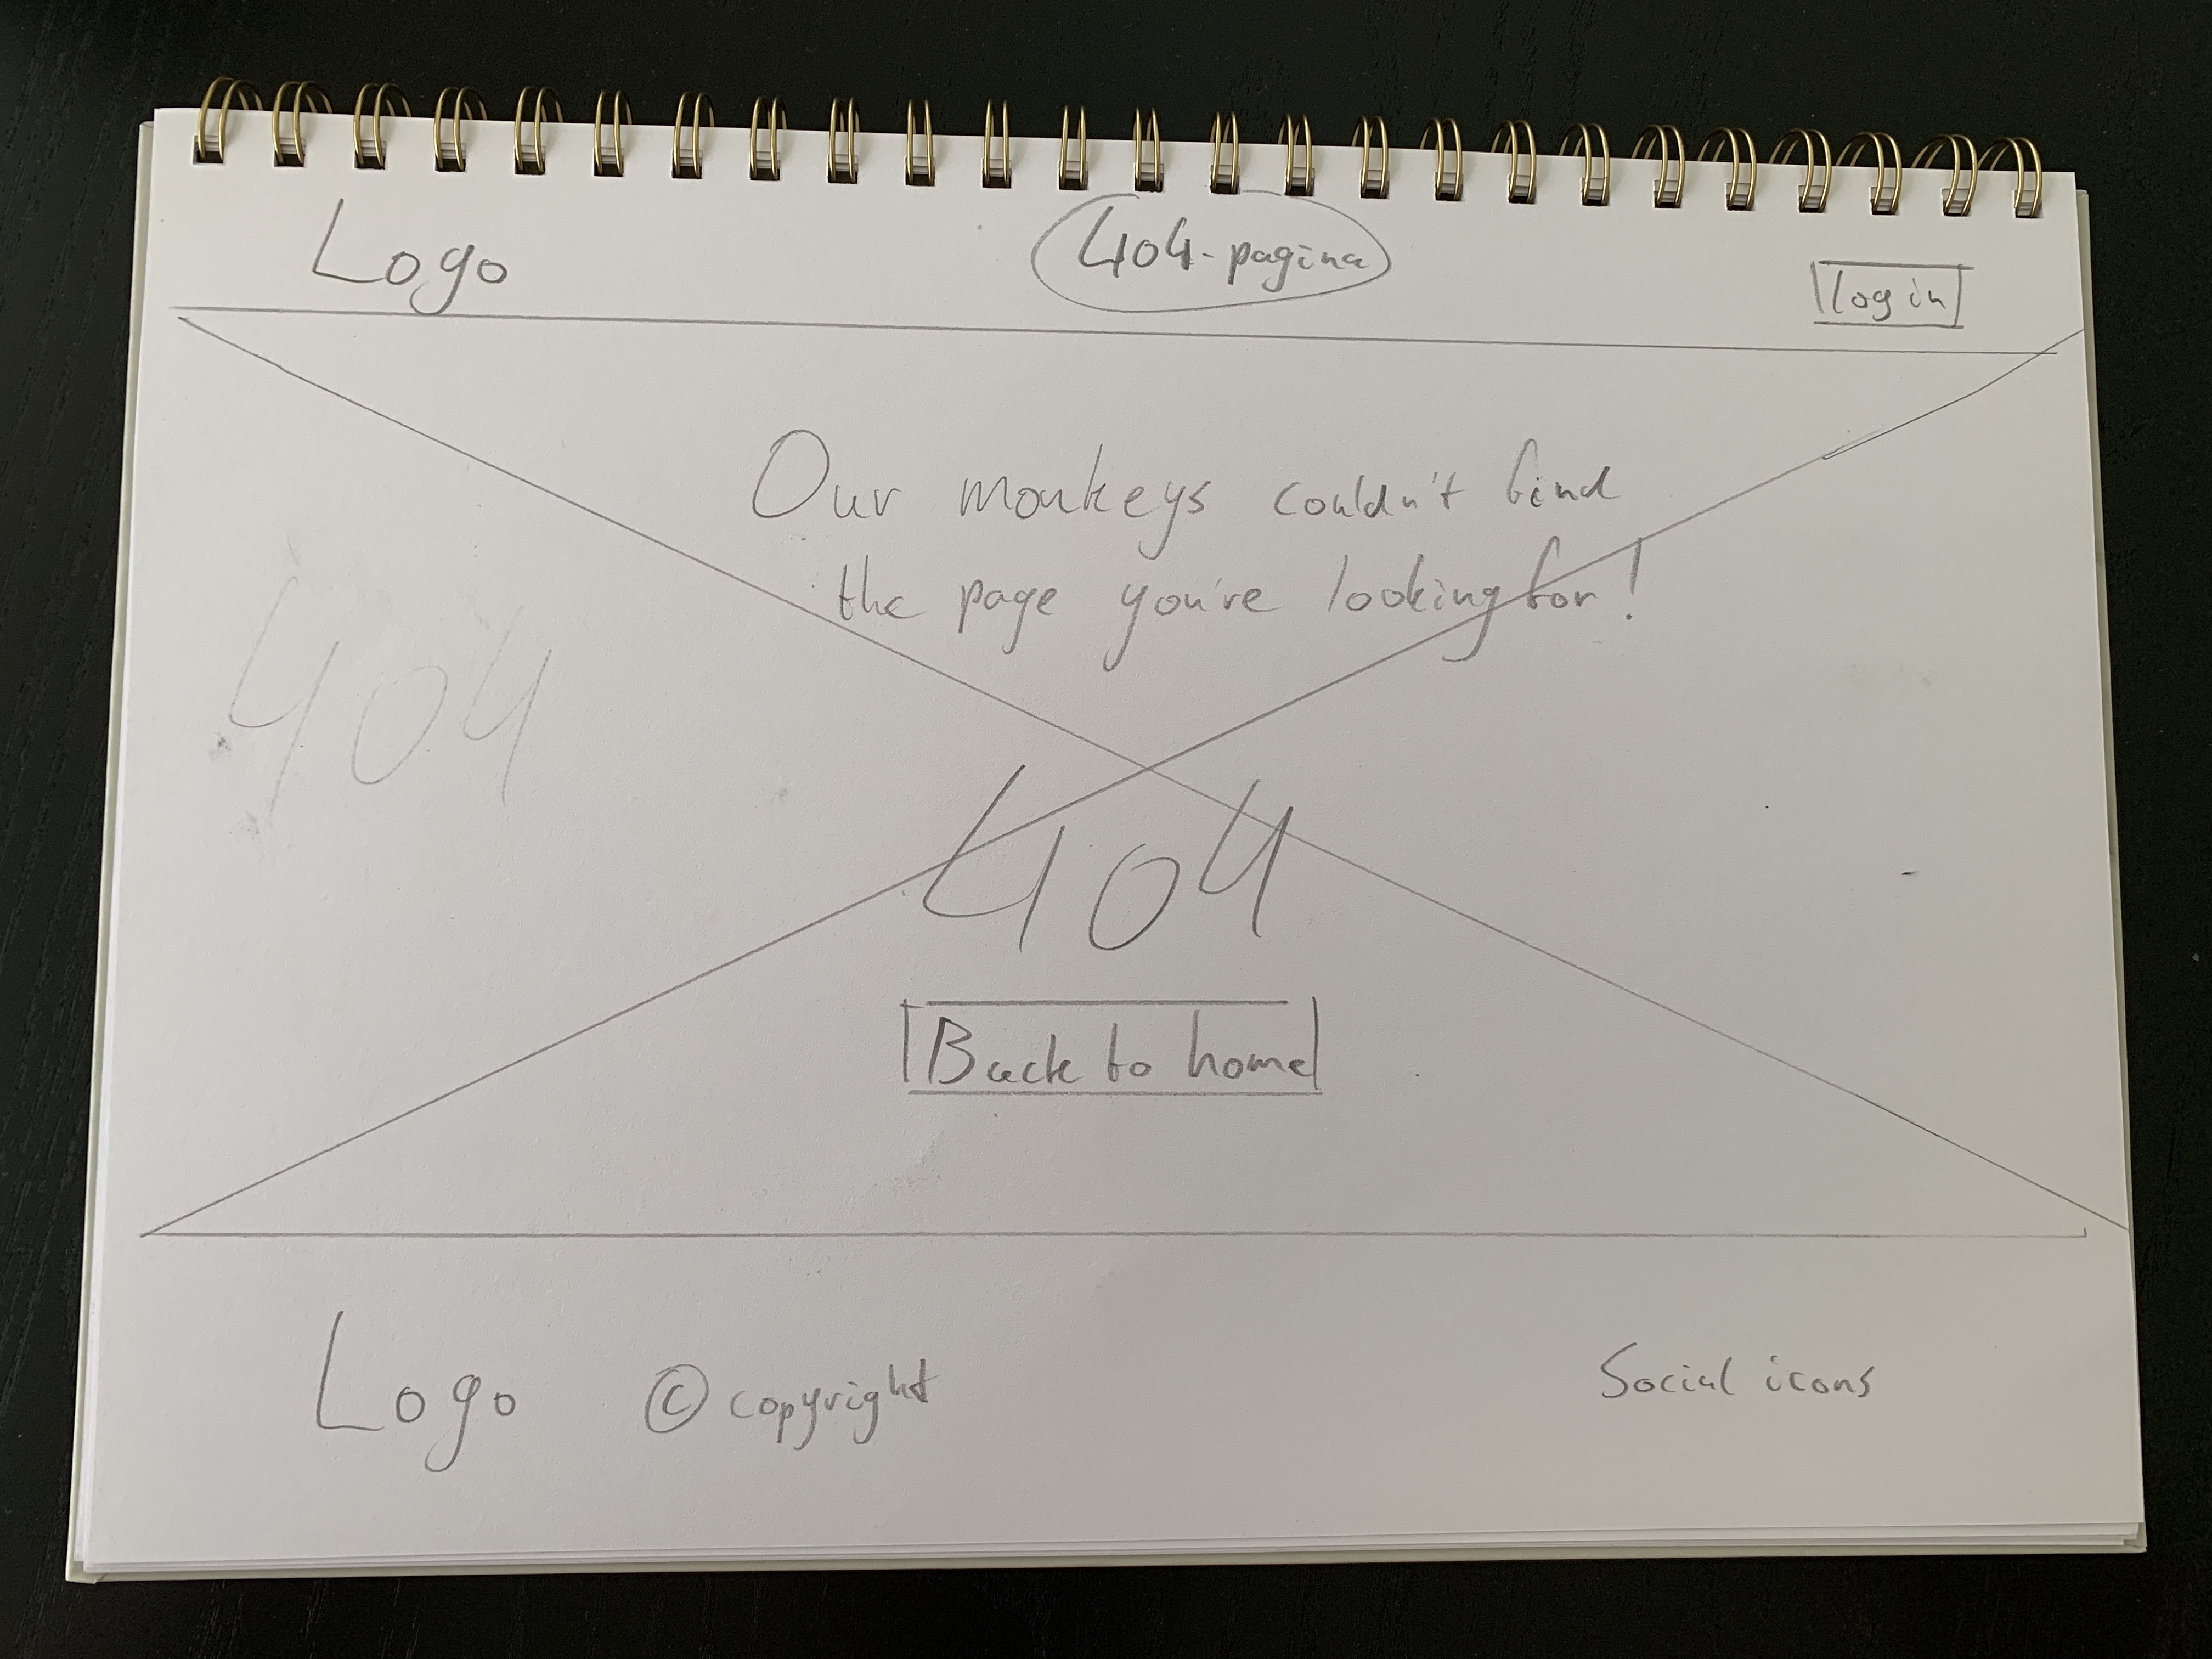 Logo
404-pagina
log in
Our monkeys couldn't find
the page you're looking for!
404
404
Back to home
Logo
© copyright
Social icons